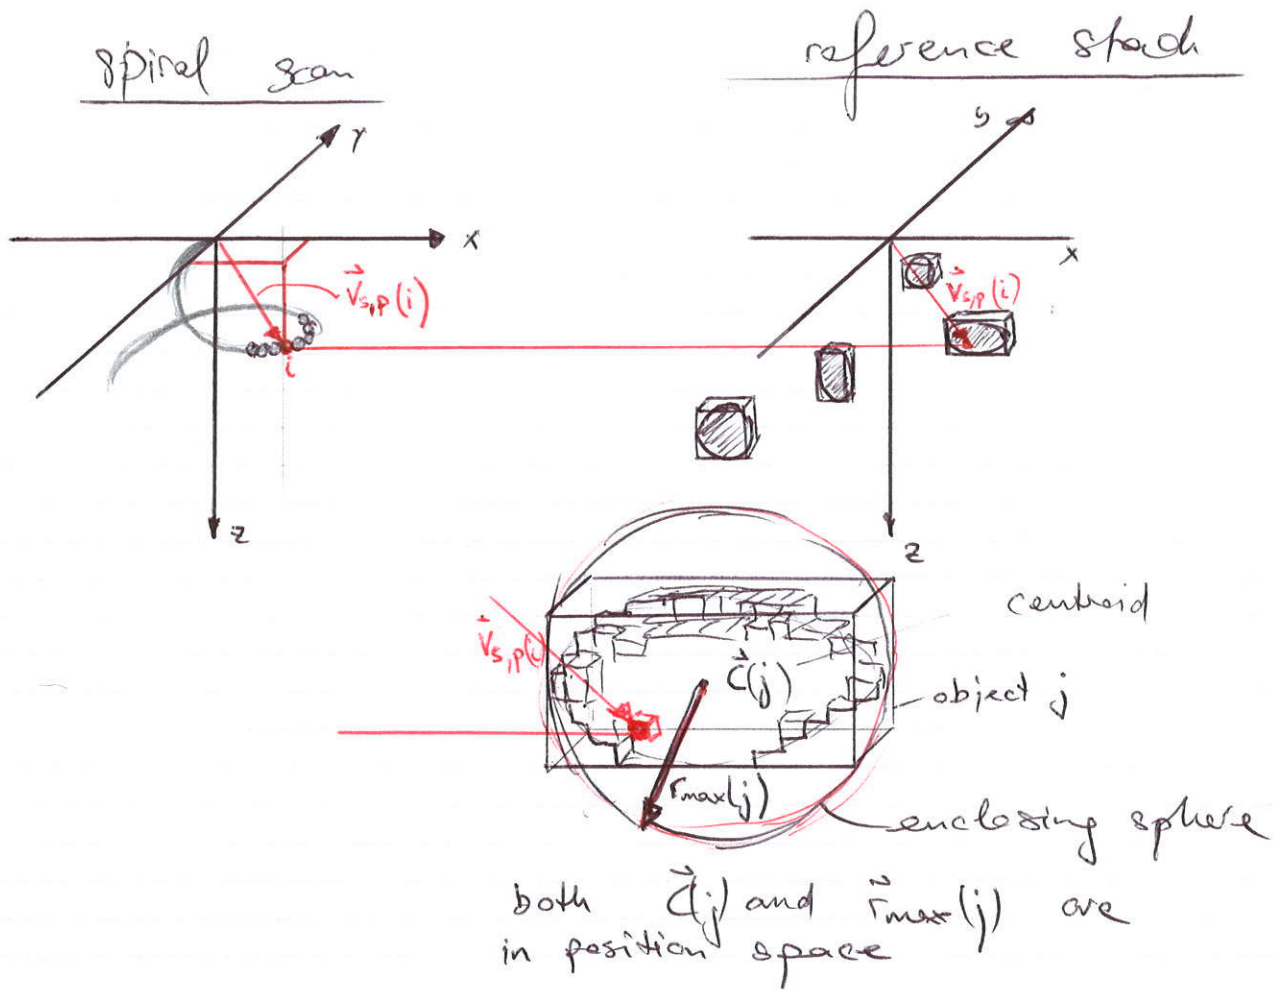 spiral scan
reference stack
y
x
V⃗s,p(i)
i
z
y
x
V⃗s,p(i)
z
centroid
V⃗s,p(i)
C⃗(j)
object j
rmax(j)
enclosing sphere
both C⃗(j) and r⃗max(j) are
in position space